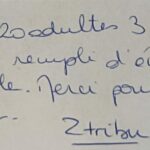 20 adultes 3
rempli d'é
le. Merci pou
2 tribu